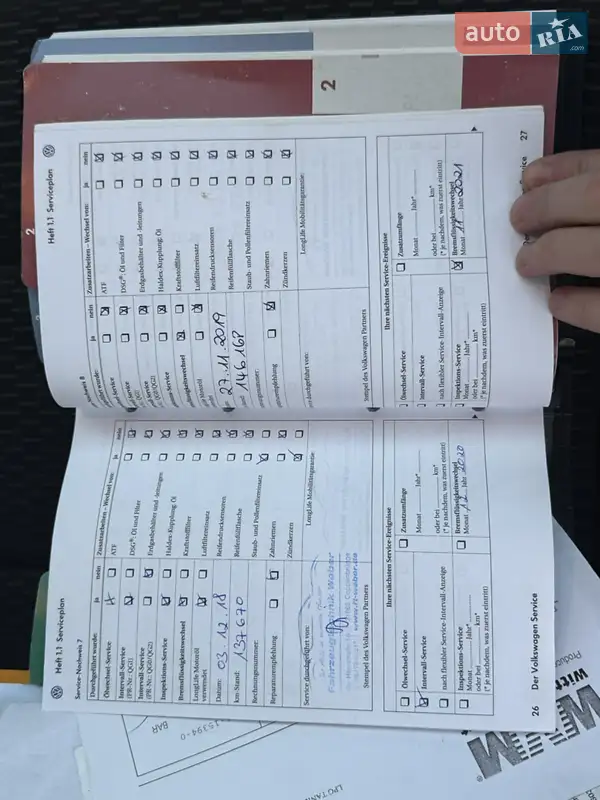 auto RIA .com
2
2
Heft 1.1 Serviceplan
Service-Nachweis 7
Durchgeführt wurde: ja nein
Ölwechsel-Service
Intervall-Service
(PR-Nr.: QG1)
Intervall-Service
(PR-Nr.: QG0/QG2)
Inspektions-Service
Bremsflüssigkeitswechsel
LongLife Motoröl
verwendet
Datum: 03.12.18
km-Stand: 137670
Rechnungsnummer:
Reparaturempfehlung
Service durchgeführt von:
Fahrzeugtechnik Weber
Stempel des Volkswagen Partners
Zusatzarbeiten – Wechsel von: ja nein
ATF
DSG®: Öl und Filter
Erdgasbehälter und -leitungen
Haldex-Kupplung: Öl
Kraftstofffilter
Luftfiltereinsatz
Reifendrucksensoren
Reifenfüllflasche
Staub- und Pollenfiltereinsatz
Zahnriemen
Zündkerzen
LongLife Mobilitätsgarantie:
Ihre nächsten Service-Ereignisse
Ölwechsel-Service
Intervall-Service
nach flexibler Service-Intervall-Anzeige
Inspektions-Service
Monat Jahr*
oder bei km*
(* je nachdem, was zuerst eintritt)
Zusatzumfänge
Monat Jahr*
oder bei km*
(* je nachdem, was zuerst eintritt)
Bremsflüssigkeitswechsel
Monat 12 Jahr 2020
26 Der Volkswagen Service
Heft 1.1 Serviceplan
27.11.2019
146168
Stempel des Volkswagen Partners
Zusatzarbeiten – Wechsel von: ja nein
ATF
DSG®: Öl und Filter
Erdgasbehälter und -leitungen
Haldex-Kupplung: Öl
Kraftstofffilter
Luftfiltereinsatz
Reifendrucksensoren
Reifenfüllflasche
Staub- und Pollenfiltereinsatz
Zahnriemen
Zündkerzen
LongLife Mobilitätsgarantie:
Ihre nächsten Service-Ereignisse
Ölwechsel-Service
Intervall-Service
nach flexibler Service-Intervall-Anzeige
Inspektions-Service
Monat Jahr*
oder bei km*
(* je nachdem, was zuerst eintritt)
Zusatzumfänge
Monat Jahr*
oder bei km*
(* je nachdem, was zuerst eintritt)
Bremsflüssigkeitswechsel
Monat 11 Jahr 2021
27
15394-0
BAR